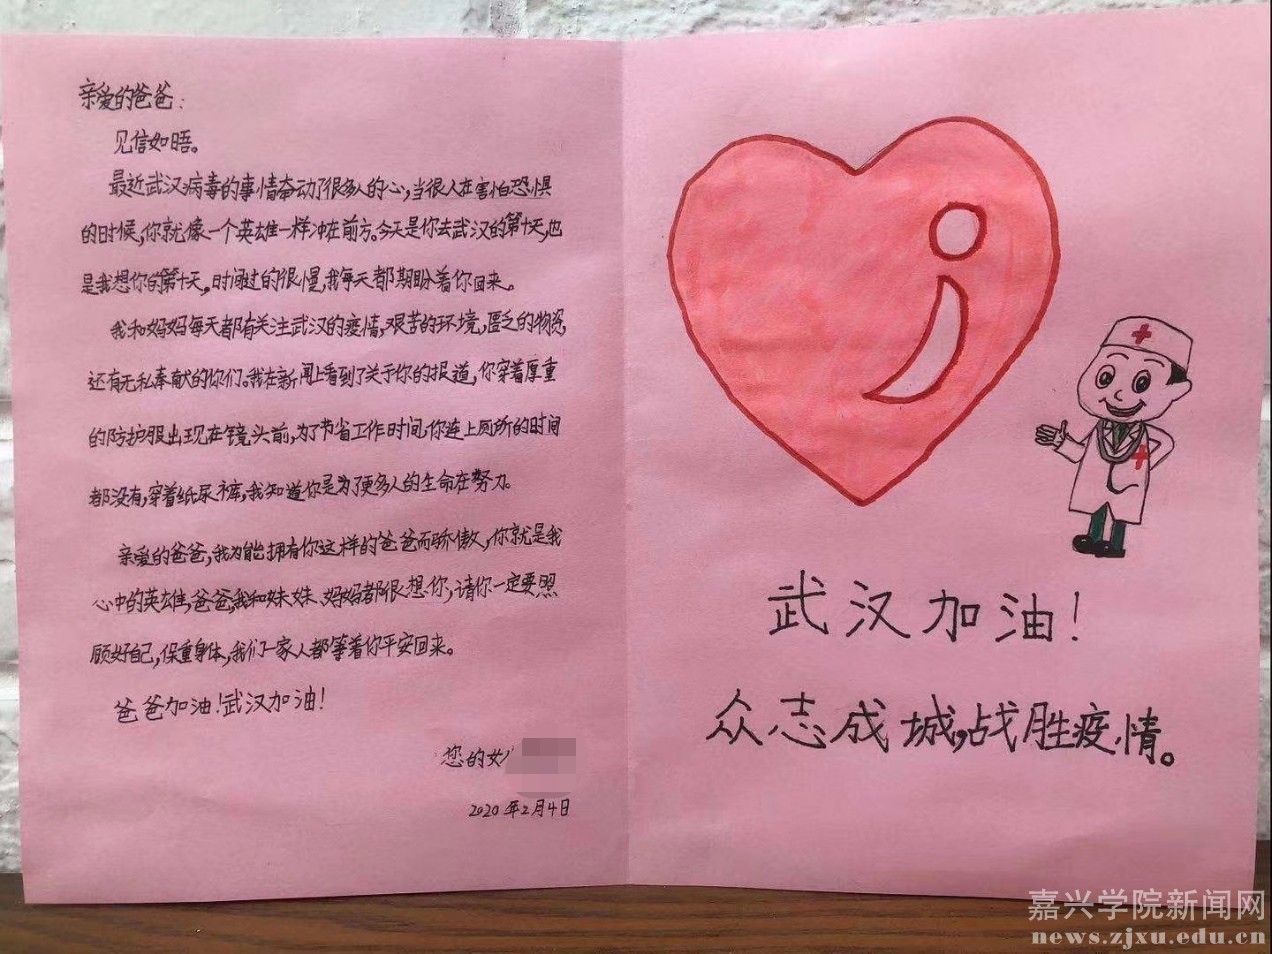 亲爱的爸爸：
见信如晤。
最近武汉病毒的事情牵动了很多人的心，当很人在害怕恐惧
的时候，你就像一个英雄一样冲在前方。今天是你去武汉的第十天，也
是我想你的第十天。时间过的很慢，我每天都期盼着你回来。
我和妈妈每天都有关注武汉的疫情，艰苦的环境，匮乏的物资，
还有无私奉献的你们。我在新闻上看到了关于你的报道，你穿着厚重
的防护服出现在镜头前，为了节省工作时间，你连上厕所的时间
都没有，穿着纸尿裤，我知道你是为了更多人的生命在努力。
亲爱的爸爸，我为能拥有你这样的爸爸而骄傲，你就是我
心中的英雄，爸爸，我和妹妹、妈妈都很想你，请你一定要照
顾好自己，保重身体，我们一家人都等着你平安回来。
爸爸加油！武汉加油！
您的女
2020年2月4日
武汉加油！
众志成城，战胜疫情。
嘉兴学院新闻网
news.zjxu.edu.cn